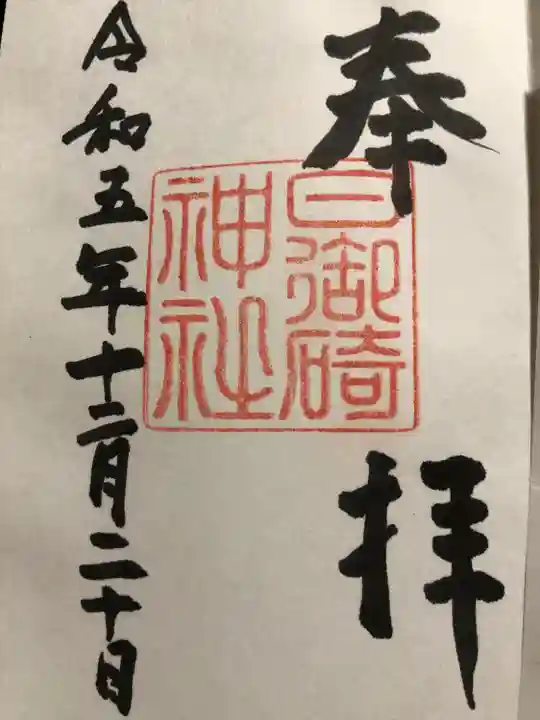 奉拝
日御碕
神社
令和五年十二月二十日